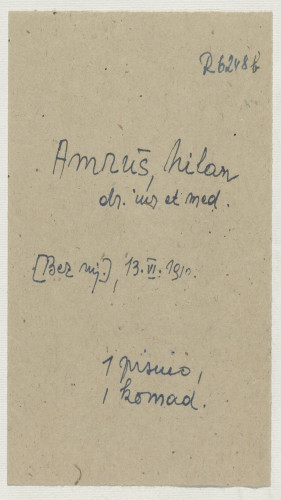 R6248b
Amruš, Milan
dr. iur et med.
[Bez mj.], 13.VI.
1 pismo,
1 komad.